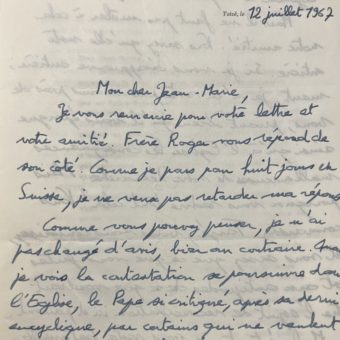 Taizé, le 12 juillet 1967
Mon cher Jean-Marie,
Je vous remercie pour votre lettre et
votre amitié. Frère Roger vous répond de
son côté. Comme je pars pour huit jours en
Suisse, je ne veux pas retarder ma répons
Comme vous pouvez penser, je n'ai
pas changé d'avis, bien au contraire. Quan
je vois la contestation se poursuivre dans
l'Eglise, le Pape si critiqué, après sa derni
encyclique, par certains qui ne veulent